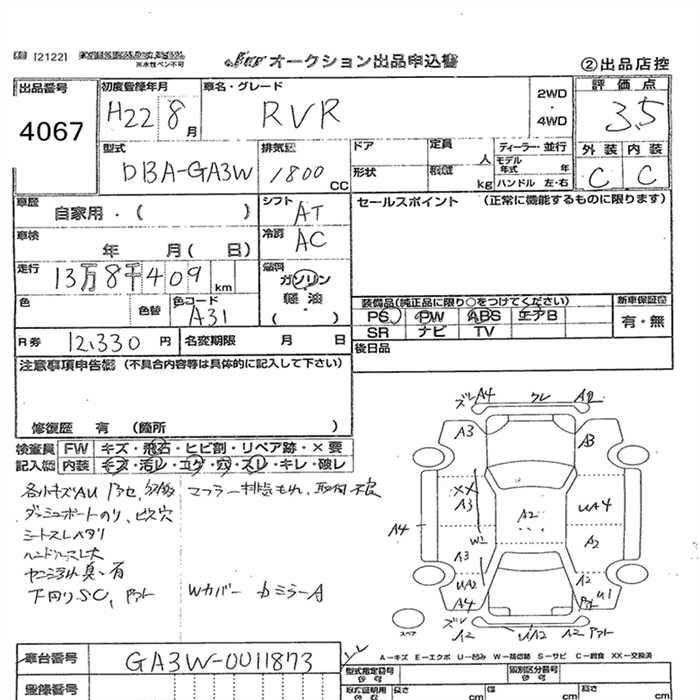 [2122]
※水性ペン不可
オークション出品申込書
②出品店控
出品番号
4067
初度登録年月
H22 8月
車名・グレード
RVR
2WD
・
4WD
評価点
3.5
型式
DBA-GA3W
排気量
1800 CC
ドア
形状
定員 人
積載 kg
ディーラー・並行
モデル年式 年
ハンドル 左・右
外装 内装
C C
車歴
自家用・( )
シフト
AT
車検
年 月( 日)
冷房
AC
セールスポイント (正常に機能するものに限ります)
走行
13万8千409km
燃料
ガソリン
軽油
( )
色
色替
色コード
A31
装備品(純正品に限り○をつけてください)
PS PW ABS エアB
SR ナビ TV
新車保証書
有・無
R券 12,330円
名変期限 月 日
後日品
注意事項申告欄 (不具合内容等は具体的に記入して下さい)
修復歴 有 (箇所 )
検査員記入欄
FW キズ・飛石・ヒビ割・リペア跡・×要
内装 キズ・汚レ・コゲ・穴・スレ・キレ・破レ
各小キズAU
マフラー排気もれ、取付不良
ダッシュボードのり、ビス穴
シートスレヘタリ
ハンドルスレ大
下回りSC、
Wカバー
ミラーA
ズレ A4 クレ
A3
××
A3
UA4
A4
A2
W2
A2
A3
UA2
A2
A4
U1
ズレ
A2
UA2
A2
スペア
A－キズ E－エクボ U－凹み W－補修跡 S－サビ C－腐食 XX－交換済
車台番号
GA3W-0011873
登録番号
型式指定番号
類別区分番号
長さ cm
幅 cm
高さ cm